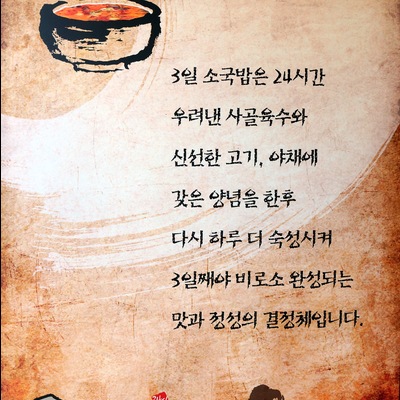 3일 소국밥은 24시간
우려낸 사골육수와
신선한 고기, 야채에
갖은 양념을 한후
다시 하루 더 숙성시켜
3일째야 비로소 완성되는
맛과 정성의 결정체입니다.